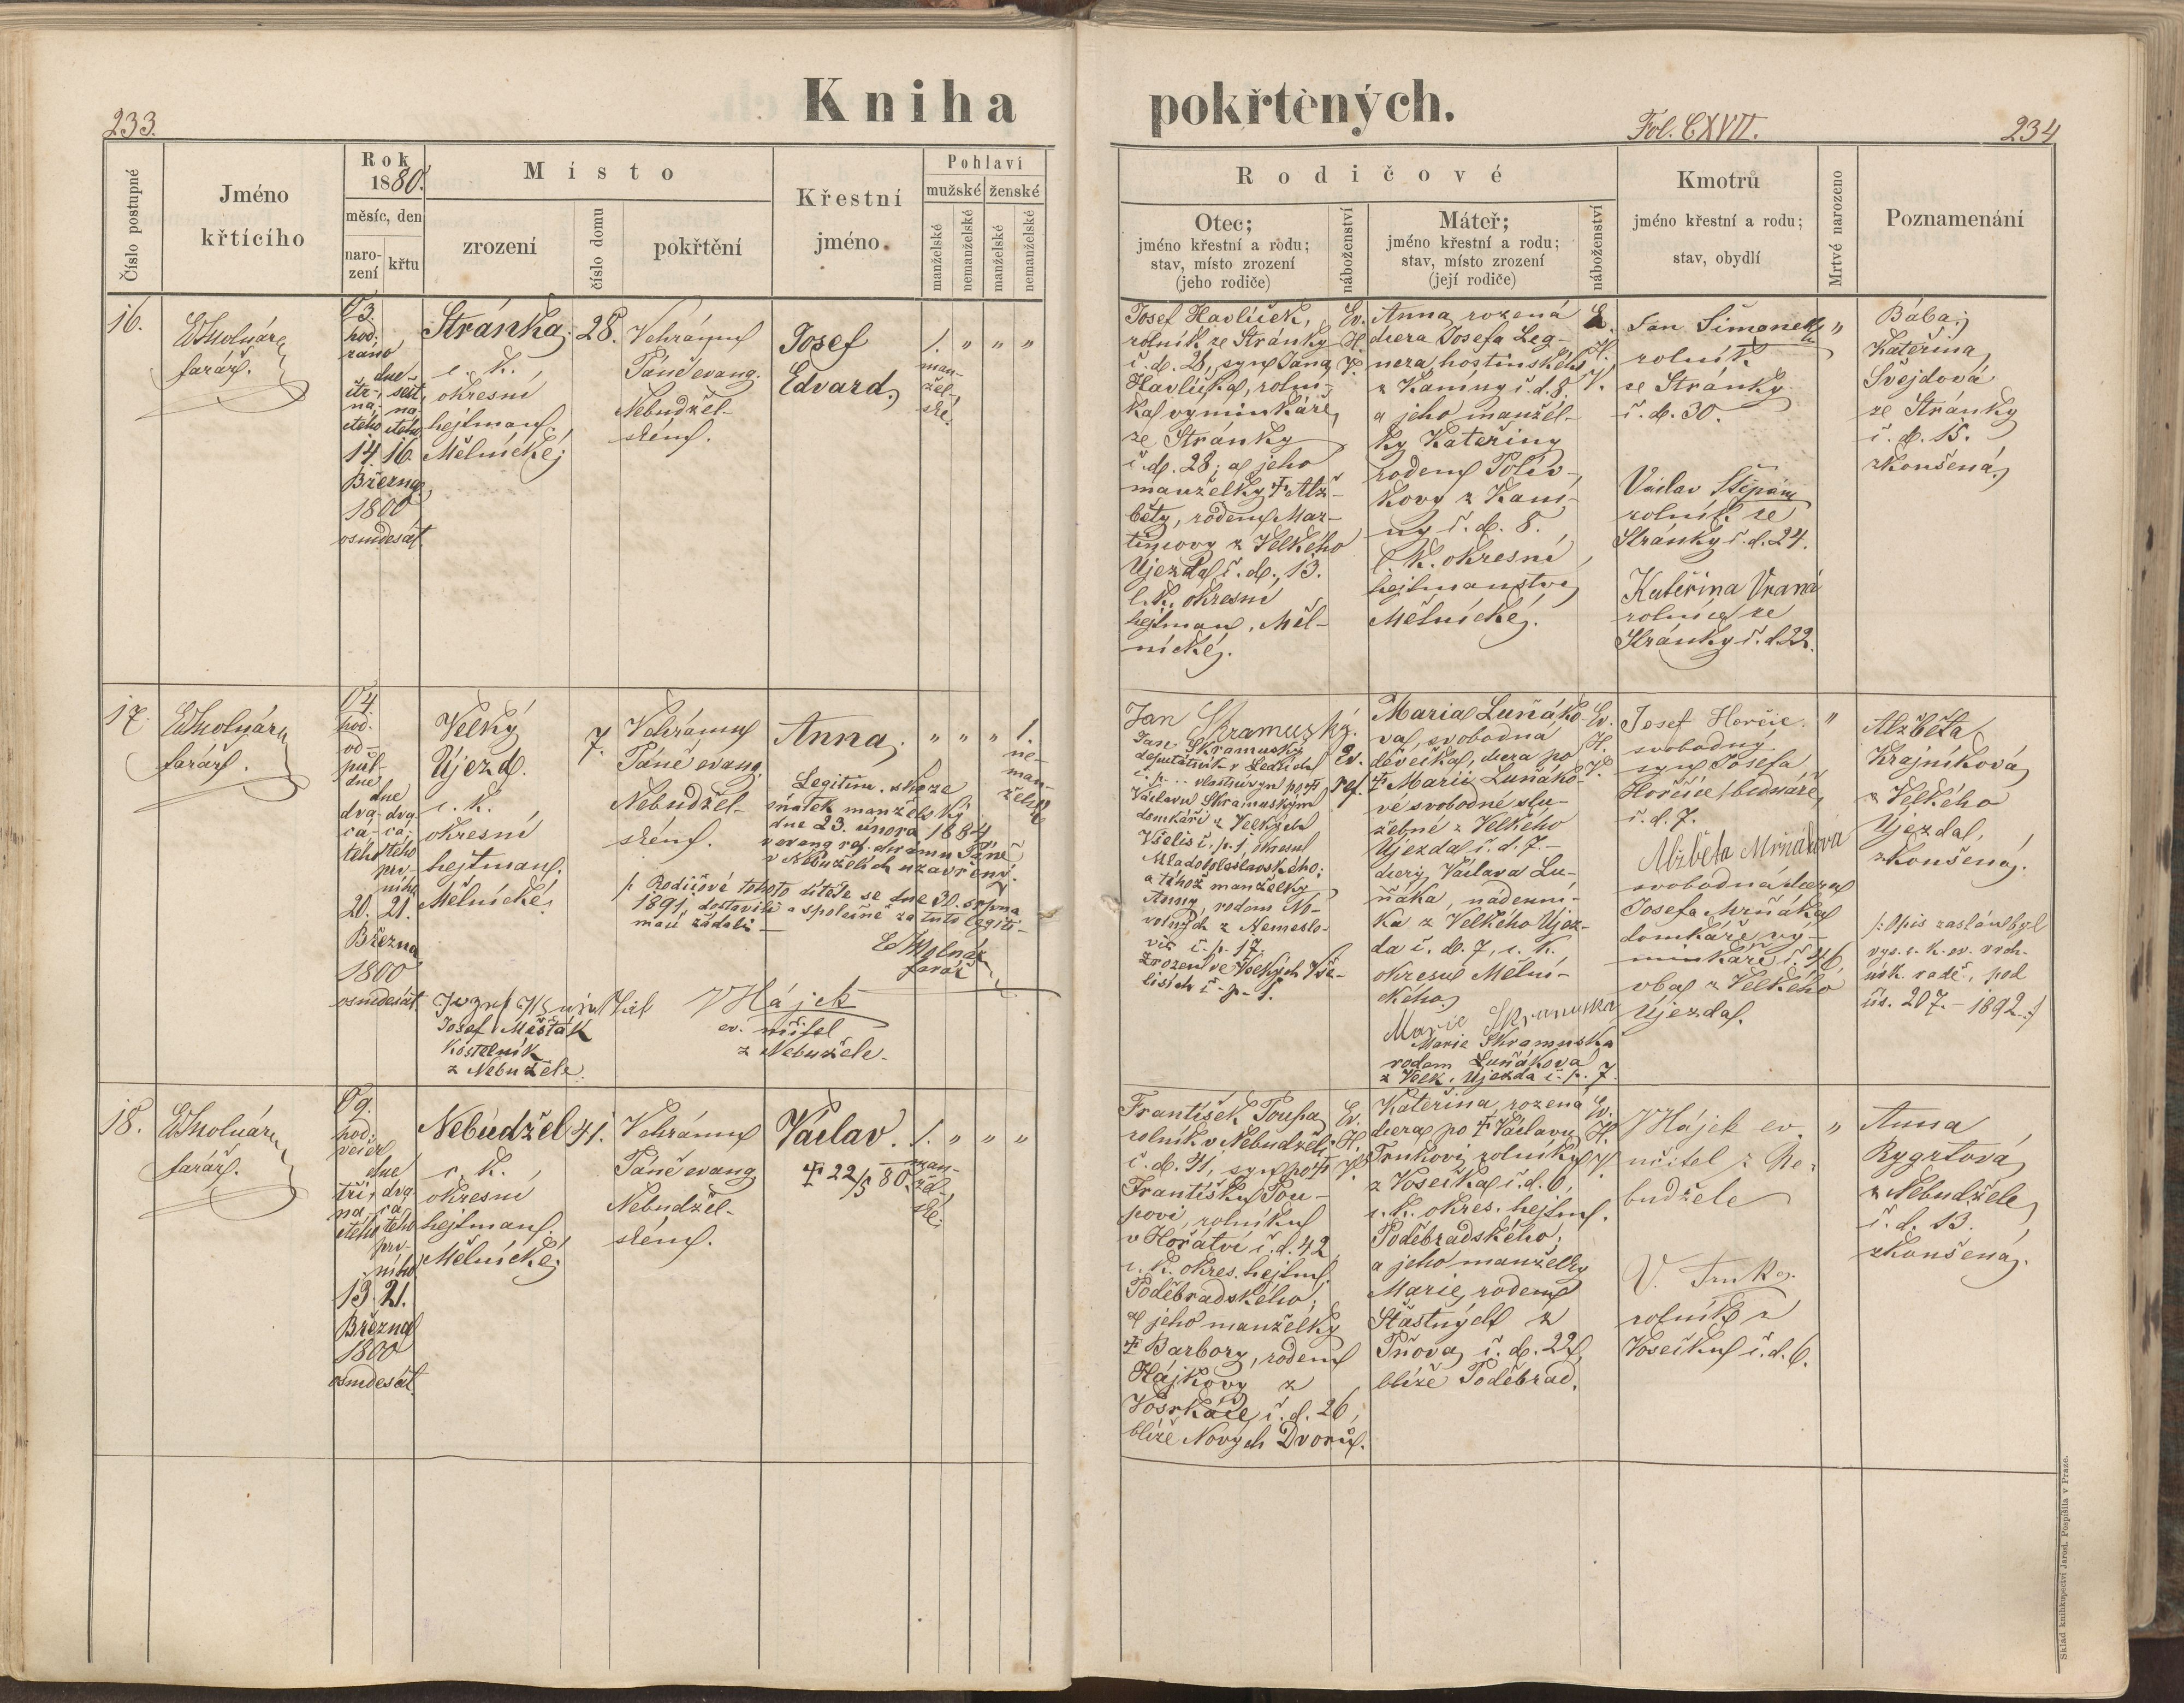 233.
Kniha
pokřtěných.
Fol. CXVII.
234
Číslo postupné
Jméno
křtícího
Rok
1880.
měsíc, den
naro-
zení
křtu
Místo
zrození
číslo domu
pokřtění
Křestní
jméno.
Pohlaví
mužské
ženské
manželské
nemanželské
manželské
nemanželské
Rodičové
Otec;
jméno křestní a rodu;
stav, místo zrození
(jeho rodiče)
náboženství
Máteř;
jméno křestní a rodu;
stav, místo zrození
(její rodiče)
náboženství
Kmotrů
jméno křestní a rodu;
stav, obydlí
Mrtvé narozeno
Poznamenání
16.
EMolnár
farář.
O 3.
hod.
ráno
dne
čtr- šest
ná- ná-
ctého ctého
14. 16.
Března
1800
osmdesát.
Stránka,
c. k.
okresní
hejtman.
Mělnické;
28.
V chrámu
Páně evang.
Nebudžel-
ském.
Josef
Edvard,
1. " " "
man-
žel-
ské.
Josef Havlíček,
rolník ze Stránky
č. d. 28, syn Jana
Havlíčka, rolní-
ka vyminkáře,
ze Stránky
č. d. 28; a jeho
manželky † Alž-
běty, rodem Mar-
tincovy z Velkého
Újezda č. d. 13.
c. k. okresní
hejtman. Měl-
nické.
Ev.
H.
V.
Anna rozená
dcera Josefa Leg-
nera, hostinského
z Kaniny č. d. 8.
a jeho manžel-
ky Kateřiny
rodem Polív-
kovy z Kani-
ny č. d. 8.
c. k. okresní
hejtmanství
Mělnické.
E.
H.
V.
Jan Šimonek
rolník
ze Stránky
č. d. 30.
Václav Štěpán
rolník ze
Stránky č. d. 24.
Kateřina Vraná
rolnice ze
Stránky č. d. 22.
"
Bába;
Kateřina
Švejdová
ze Stránky
č. d. 15.
zkoušená,
17.
EMolnár
farář.
O 4.
hod.
od-
půl-
dne
dne
dva- dva-
cá- cá-
tého tého
prv-
ního
20. 21.
Března
1800
osmdesát.
Velký
Újezd.
c. k.
okresní
hejtman.
Mělnické.
7.
V chrámu
Páně evang.
Nebudžel-
ském.
Anna.
" " " 1.
ne-
man-
želské
Legitim. skrze
sňatek manželský
dne 23. února 1884
v evang. ref. chrámu Páně
v Nebuželích uzavřený.
/: Rodičové tohoto dítěte se dne 30. srpna
1891 dostavili a společně za tuto legiti-
maci žádali —
EMolnár
farář
Josef Měšťák
kostelník
z Nebužele.
VHájek
ev. učitel
z Nebužele.
Jan Skramuský.
Jan Skramuský
deputátník v Ledcích
č. p. .. vlastní syn po †
Václavu Skramuském
domkáři z Velkých
Všelis č. p. 1, okresu
Mladoboleslavského;
a téhož manželky
Anny, rodem No-
votných z Nemeslo-
vic č. p. 17.
zrozen ve Velkých Vše-
lisích č. p. 1.
Ev.
ref.
Maria Luňáko-
va, svobodná
děvečka, dcera po
† Marii Luňáko-
vé svobodné slu-
žebné z Velkého
Újezda č. d. 7. —
dcery Václava Lu-
ňáka, nádenní-
ka z Velkého Újez-
da č. d. 7, c. k.
okresu Mělní-
ckého
Marie Skramuska
Marie Skramuska
rodem Luňákova
z Velk. Újezda č. p. 7.
Ev.
H.
V.
Josef Horčic.
svobodný
syn Josefa
Horčice, bednáře,
č. d. 7.
Alžběta Mrňáková
svobodná dcera
Josefa Mrňáka
domkáře vý-
minkáře č. 46,
oba z Velkého
Újezda.
"
Alžběta
Krajníková
z Velkého
Újezda,
zkoušená.
/: Opis zaslán byl
vys. c. k. ev. vrch.
círk. radě, pod
čís. 207. — 1892 :/
18.
EMolnár
farář.
O 9.
hod.
večer
dne
tři- dva-
ná- cá-
ctého tého
prv-
ního
13. 21.
Března
1800
osmdesát.
Nebudžel
c. k.
okresní
hejtman.
Mělnické.
41.
V chrámu
Páně evang.
Nebudžel-
ském.
Václav.
† 22/5 80.
1. " " "
man-
žel-
ské.
František Toupa
rolník v Nebudželi
č. d. 41, syn po †
Františku Tou-
povi, rolníku
v Hořátvi č. d. 42
c. k. okres. hejtm.
Poděbradského;
a jeho manželky
† Barbory, rodem
Hájkovy z
č. d. 26,
blíže Nových Dvorů.
Ev.
H.
V.
Kateřina, rozená
dcera po † Václavu
Trnkovi rolníku
z Vosečka č. d. 6,
c. k. okres. hejtm.
Poděbradského;
a jeho manželky
Marie, rodem
Šťastných z
Pňova č. d. 22,
blíže Poděbrad.
Ev.
H.
V.
VHájek ev.
učitel z Ne-
budžele
V. Trnka.
rolník z
Vosečku č. d. 6.
"
Anna
Rygrtová
z Nebudžele
č. d. 13.
zkoušená.
Sklad knihkupectví Jarosl. Pospíšila v Praze.